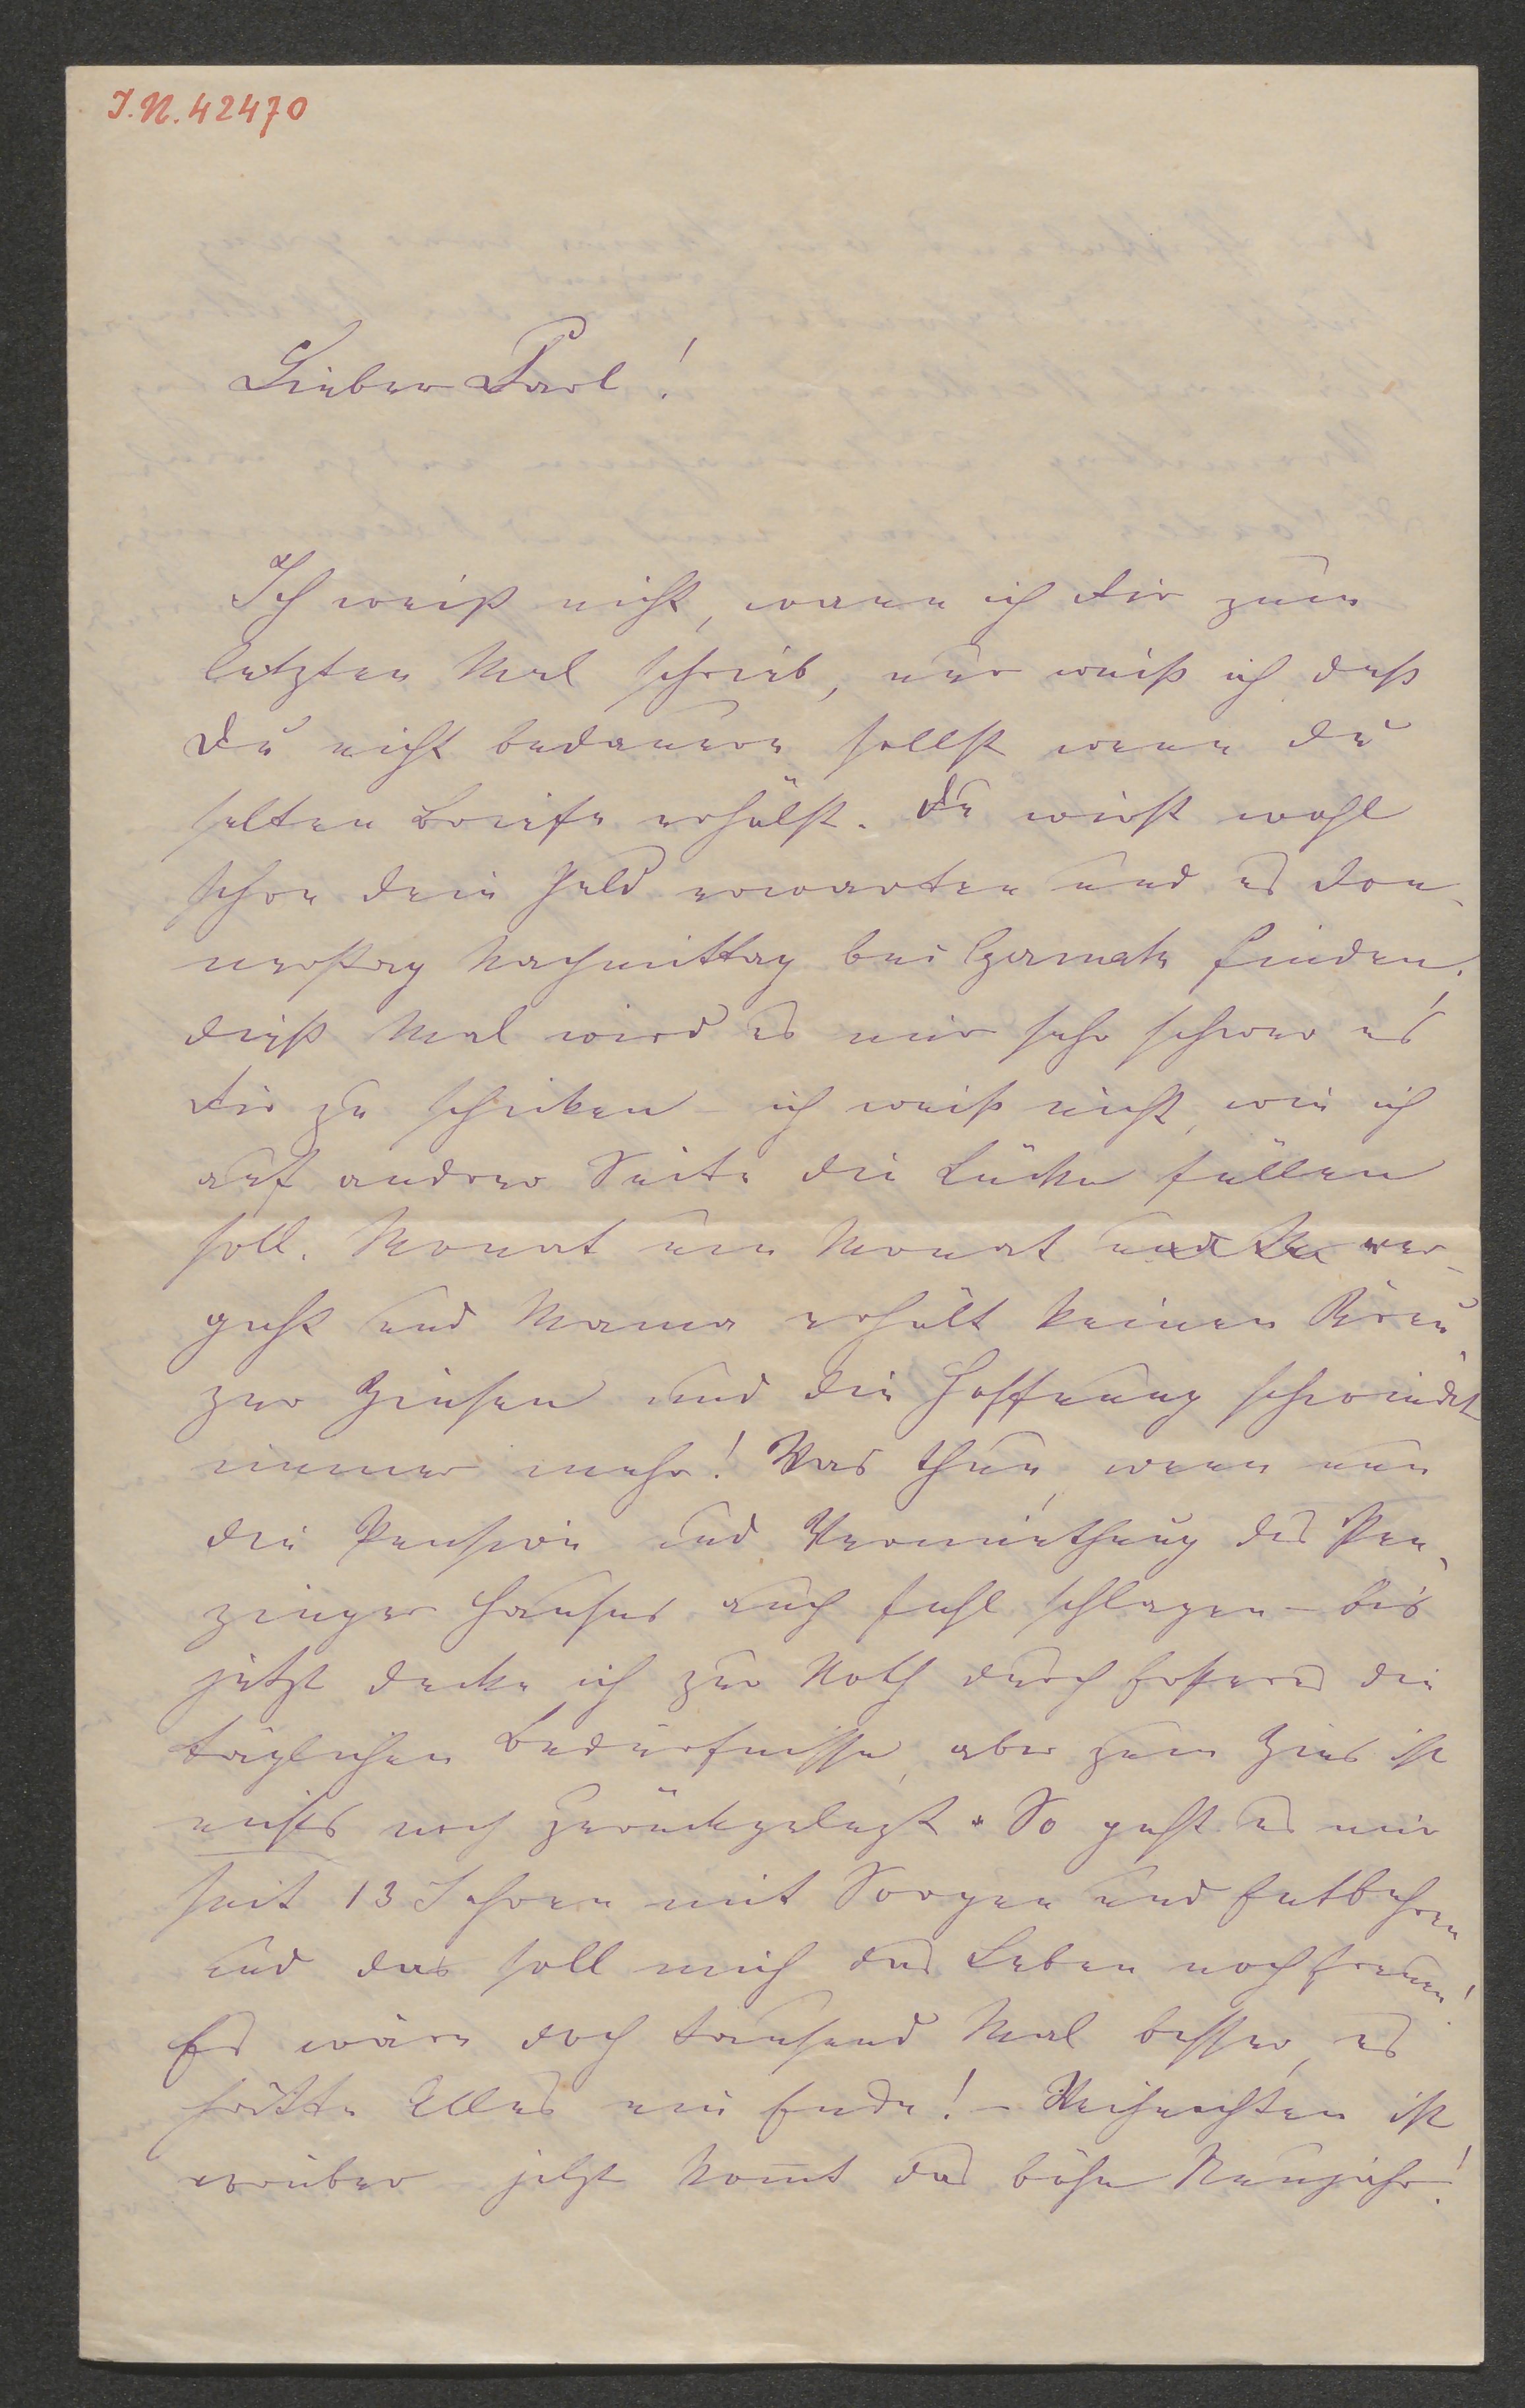 I.N. 42470
Lieber Carl!
Ich weiß nicht, wann ich Dir zum
letzten Mal schrieb, nur weiß ich, daß
Du nicht bedauern sollst wenn Du
selten Briefe erhälst. Du wirst wohl
schon dein Geld erwarten und es Don-
nerstag Nachmittag bei Czermak finden.
Dieß Mal wird es mir sehr schwer es
Dir zu schicken – ich weiß nicht, wie ich
auf andrer Seite die Lücke füllen
soll. Monat um Monat ver-
geht und Mama erhält keinen Kreu-
zer Zinsen und die Hoffnung schwindet
immer mehr! Was thun, wenn nun
die Pension und Vermiethung des Pen-
zinger Hauses auch fehl schlagen – bis
jetzt decke ich zur Noth durch Ersteres die
täglichen Bedürfnisse, aber zum Zins ist
nichts noch zurückgelegt. So geht es mir
seit 13 Jahren mit Sorgen und Entbehren
und das soll mich das Leben noch freuen!
Es wäre doch tausend Mal besser, es
hätte Alles ein Ende! – Weihnachten ist
vorüber – jetzt kom̅t das böse Neujahr!